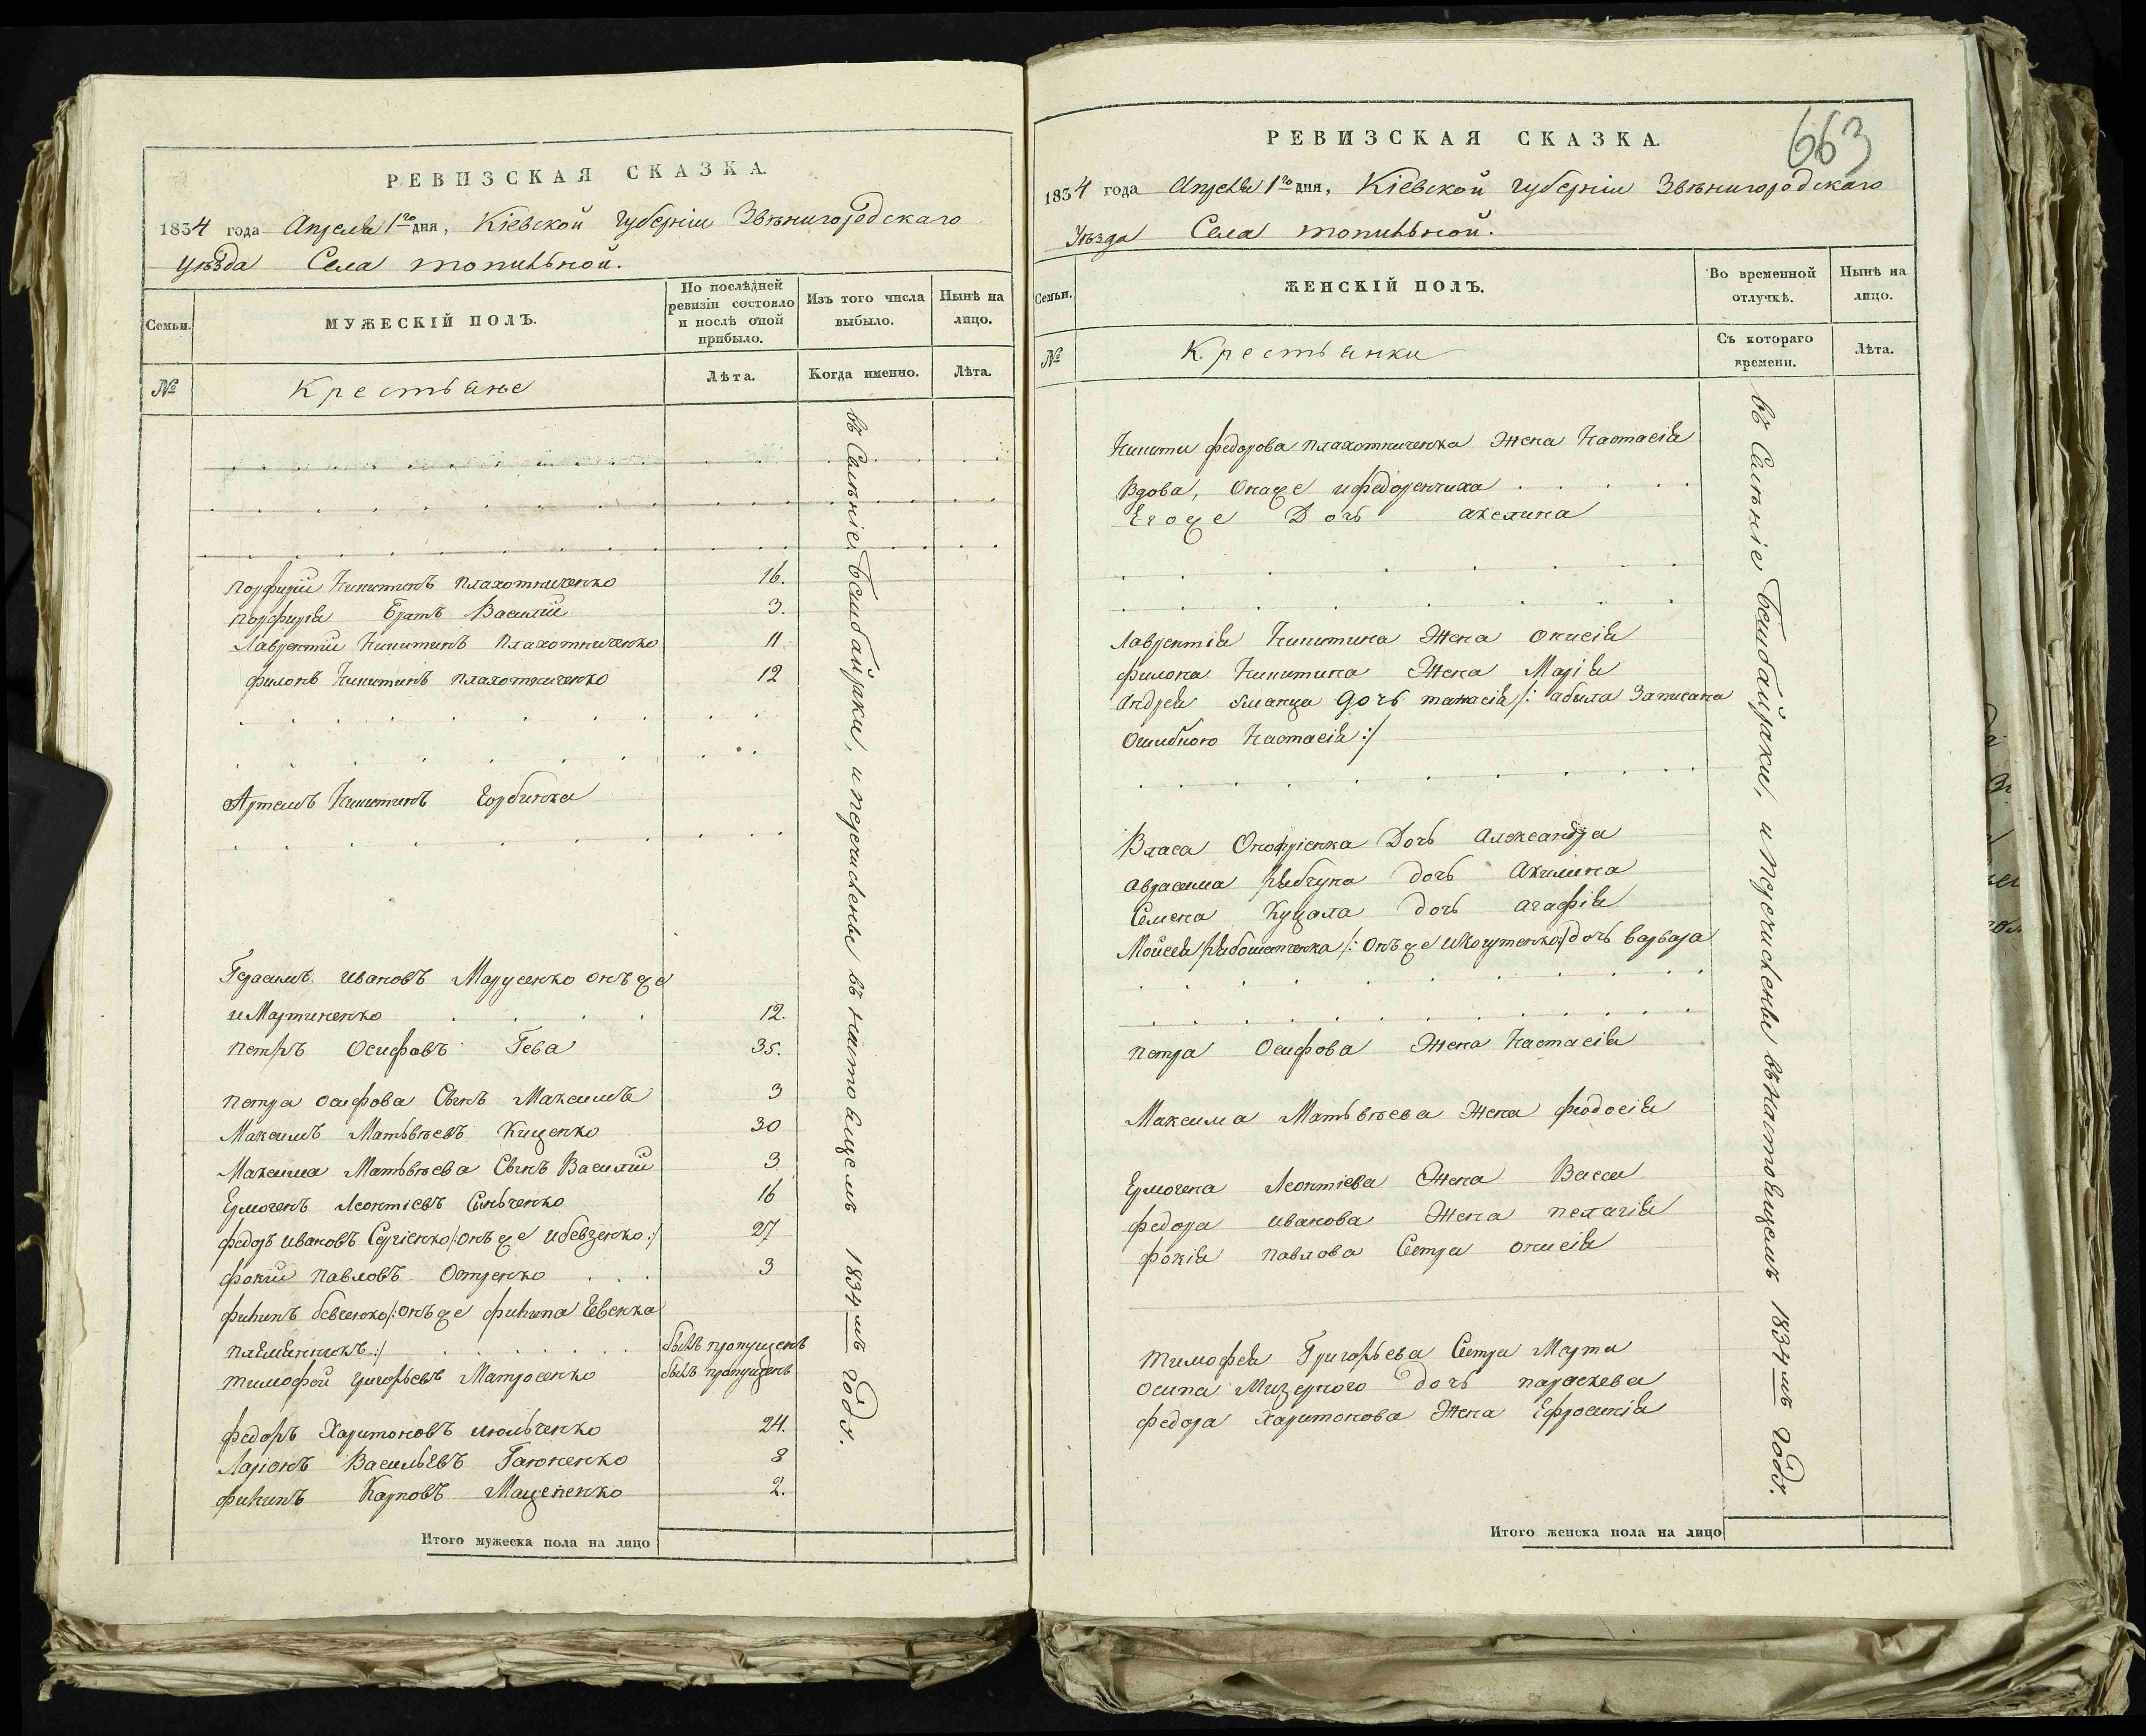 РЕВИЗСКАЯ СКАЗКА.
1834 года Апреля 1го дня, Кіевской губерніи Звѣнигородскаго
уѣзда Села топильной.
Семьи.
МУЖЕСКІЙ ПОЛЪ.
По послѣдней ревизіи состояло и послѣ оной прибыло.
Изъ того числа выбыло.
Нынѣ на лицо.
№
Крестьяне
Лѣта.
Когда именно.
Лѣта.
Порфирій Никитинъ Плахотниченко 16.
Порфирія братъ Василій 3.
Лаврентій Никитинъ Плахотниченко 11
филонъ Никитинъ плахотниченко 12
Артемъ Никитинъ Горбинка
Герасимъ ивановъ Марусенко онъ же
и Мартиненко 12.
петръ Осифовъ Гева 35.
петра осифова Сынъ Максимъ 3
Максимъ Матьвѣевъ Кищенко 30
Максима Матьвѣева Сынъ Василій 3
Ермогенъ Леонтіевъ Сыньченко 16
федоръ ивановъ Сергіенко /: онъ же 27
фокій павловъ Остренко 3
филипъ онъ же филипа
племянникъ :/ былъ пропущенъ
тимофей григорьевъ Матросенко былъ пропущенъ
федоръ Харитоновъ 24.
Ларіонъ Васильевъ Гапоненко 8
филипъ Карповъ Мацепенко 2.
въ Селѣніе Бошбайраки, и перечислены въ настоящемъ 1834мъ году.
Итого мужеска пола на лицо
663
РЕВИЗСКАЯ СКАЗКА.
1834 года Апреля 1го дня, Кіевской губерніи Звѣнигородскаго
Уѣзда Села топильной.
Семьи.
ЖЕНСКІЙ ПОЛЪ.
Во временной отлучкѣ.
Нынѣ на лицо.
№
Крестьянки
Съ котораго времени.
Лѣта.
Никиты федорова плахотниченка Жена Настасія
Вдова, Онаже ифедоренчиха
Егоже Дочь акелина
Лаврентія Никитина Жена онисія
филона Никитина Жена Марія
андрея дочь танасія /: абыла Записана
Ошибкою Настасія :/
Власа Онофріенка Дочь Александра
аврасима рябчука дочь Акилина
Семена Куцала дочь агафія
Мойсея онъже дочь варвара
петра Осифова Жена Настасія
Максима Матьвѣева Жена феодосія
Ермогена Леонтіева Жена Васса
федора иванова Жена пелагія
фокія павлова Сестра онисія
тимофея Григорьева Сестра Марта
осипа Мизерного дочь параскева
федора харитонова Жена Ефросинія
въ Селѣніе Бошбайраки, и перечислены въ настоящемъ 1834мъ году.
Итого женска пола на лицо